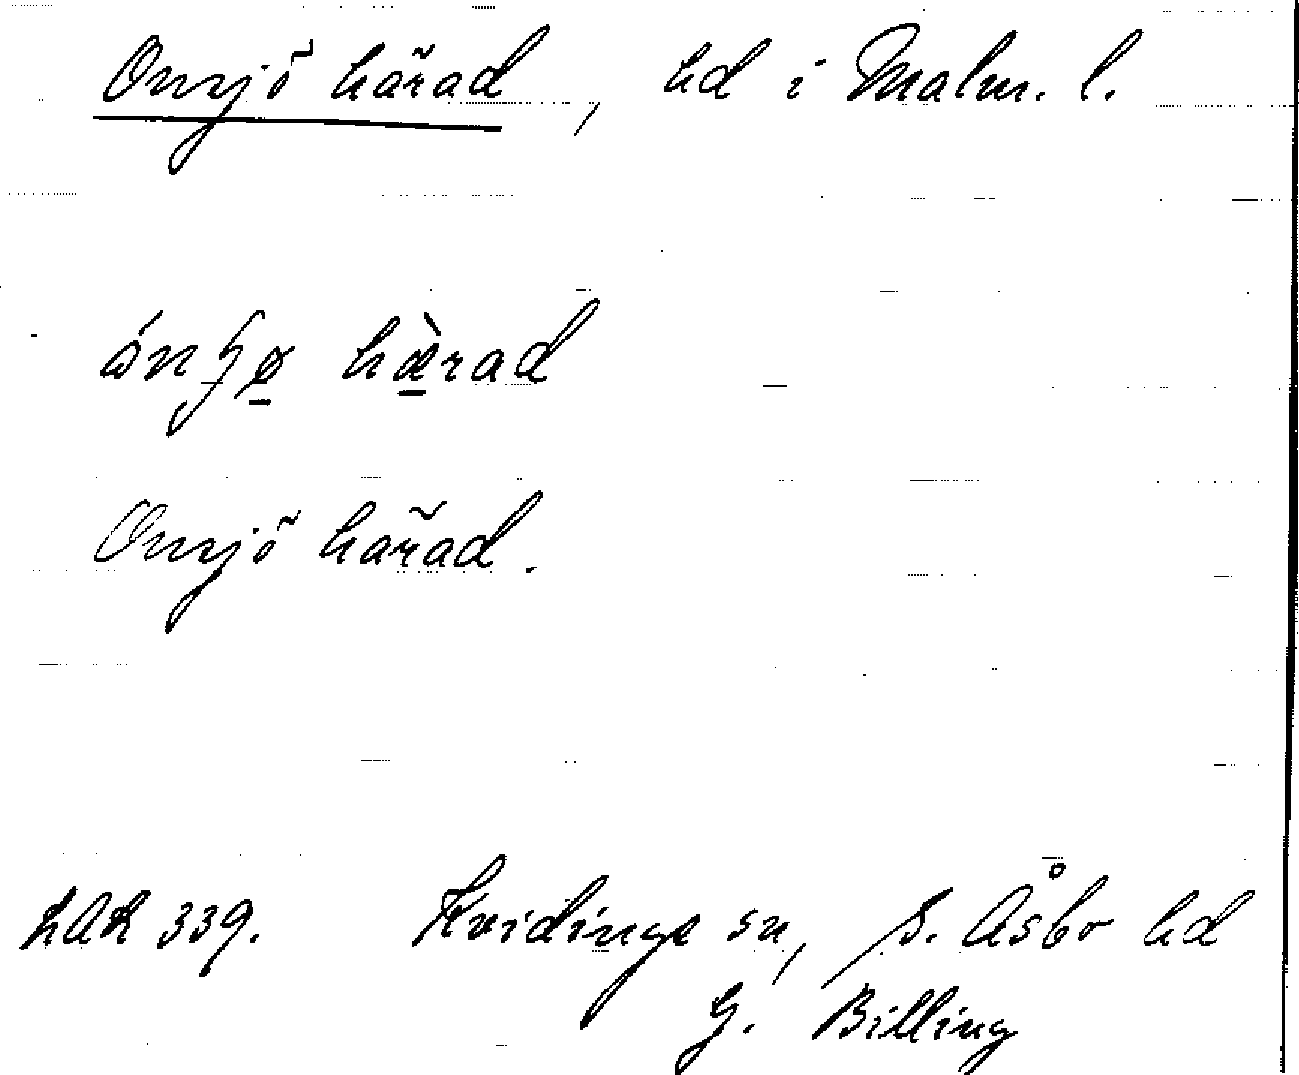 Onsjö härad, hd i Malm. l.
härad
Onsjö härad.
LAL 339. Kvidinge sn, S. Åsbo hd
G. Billing